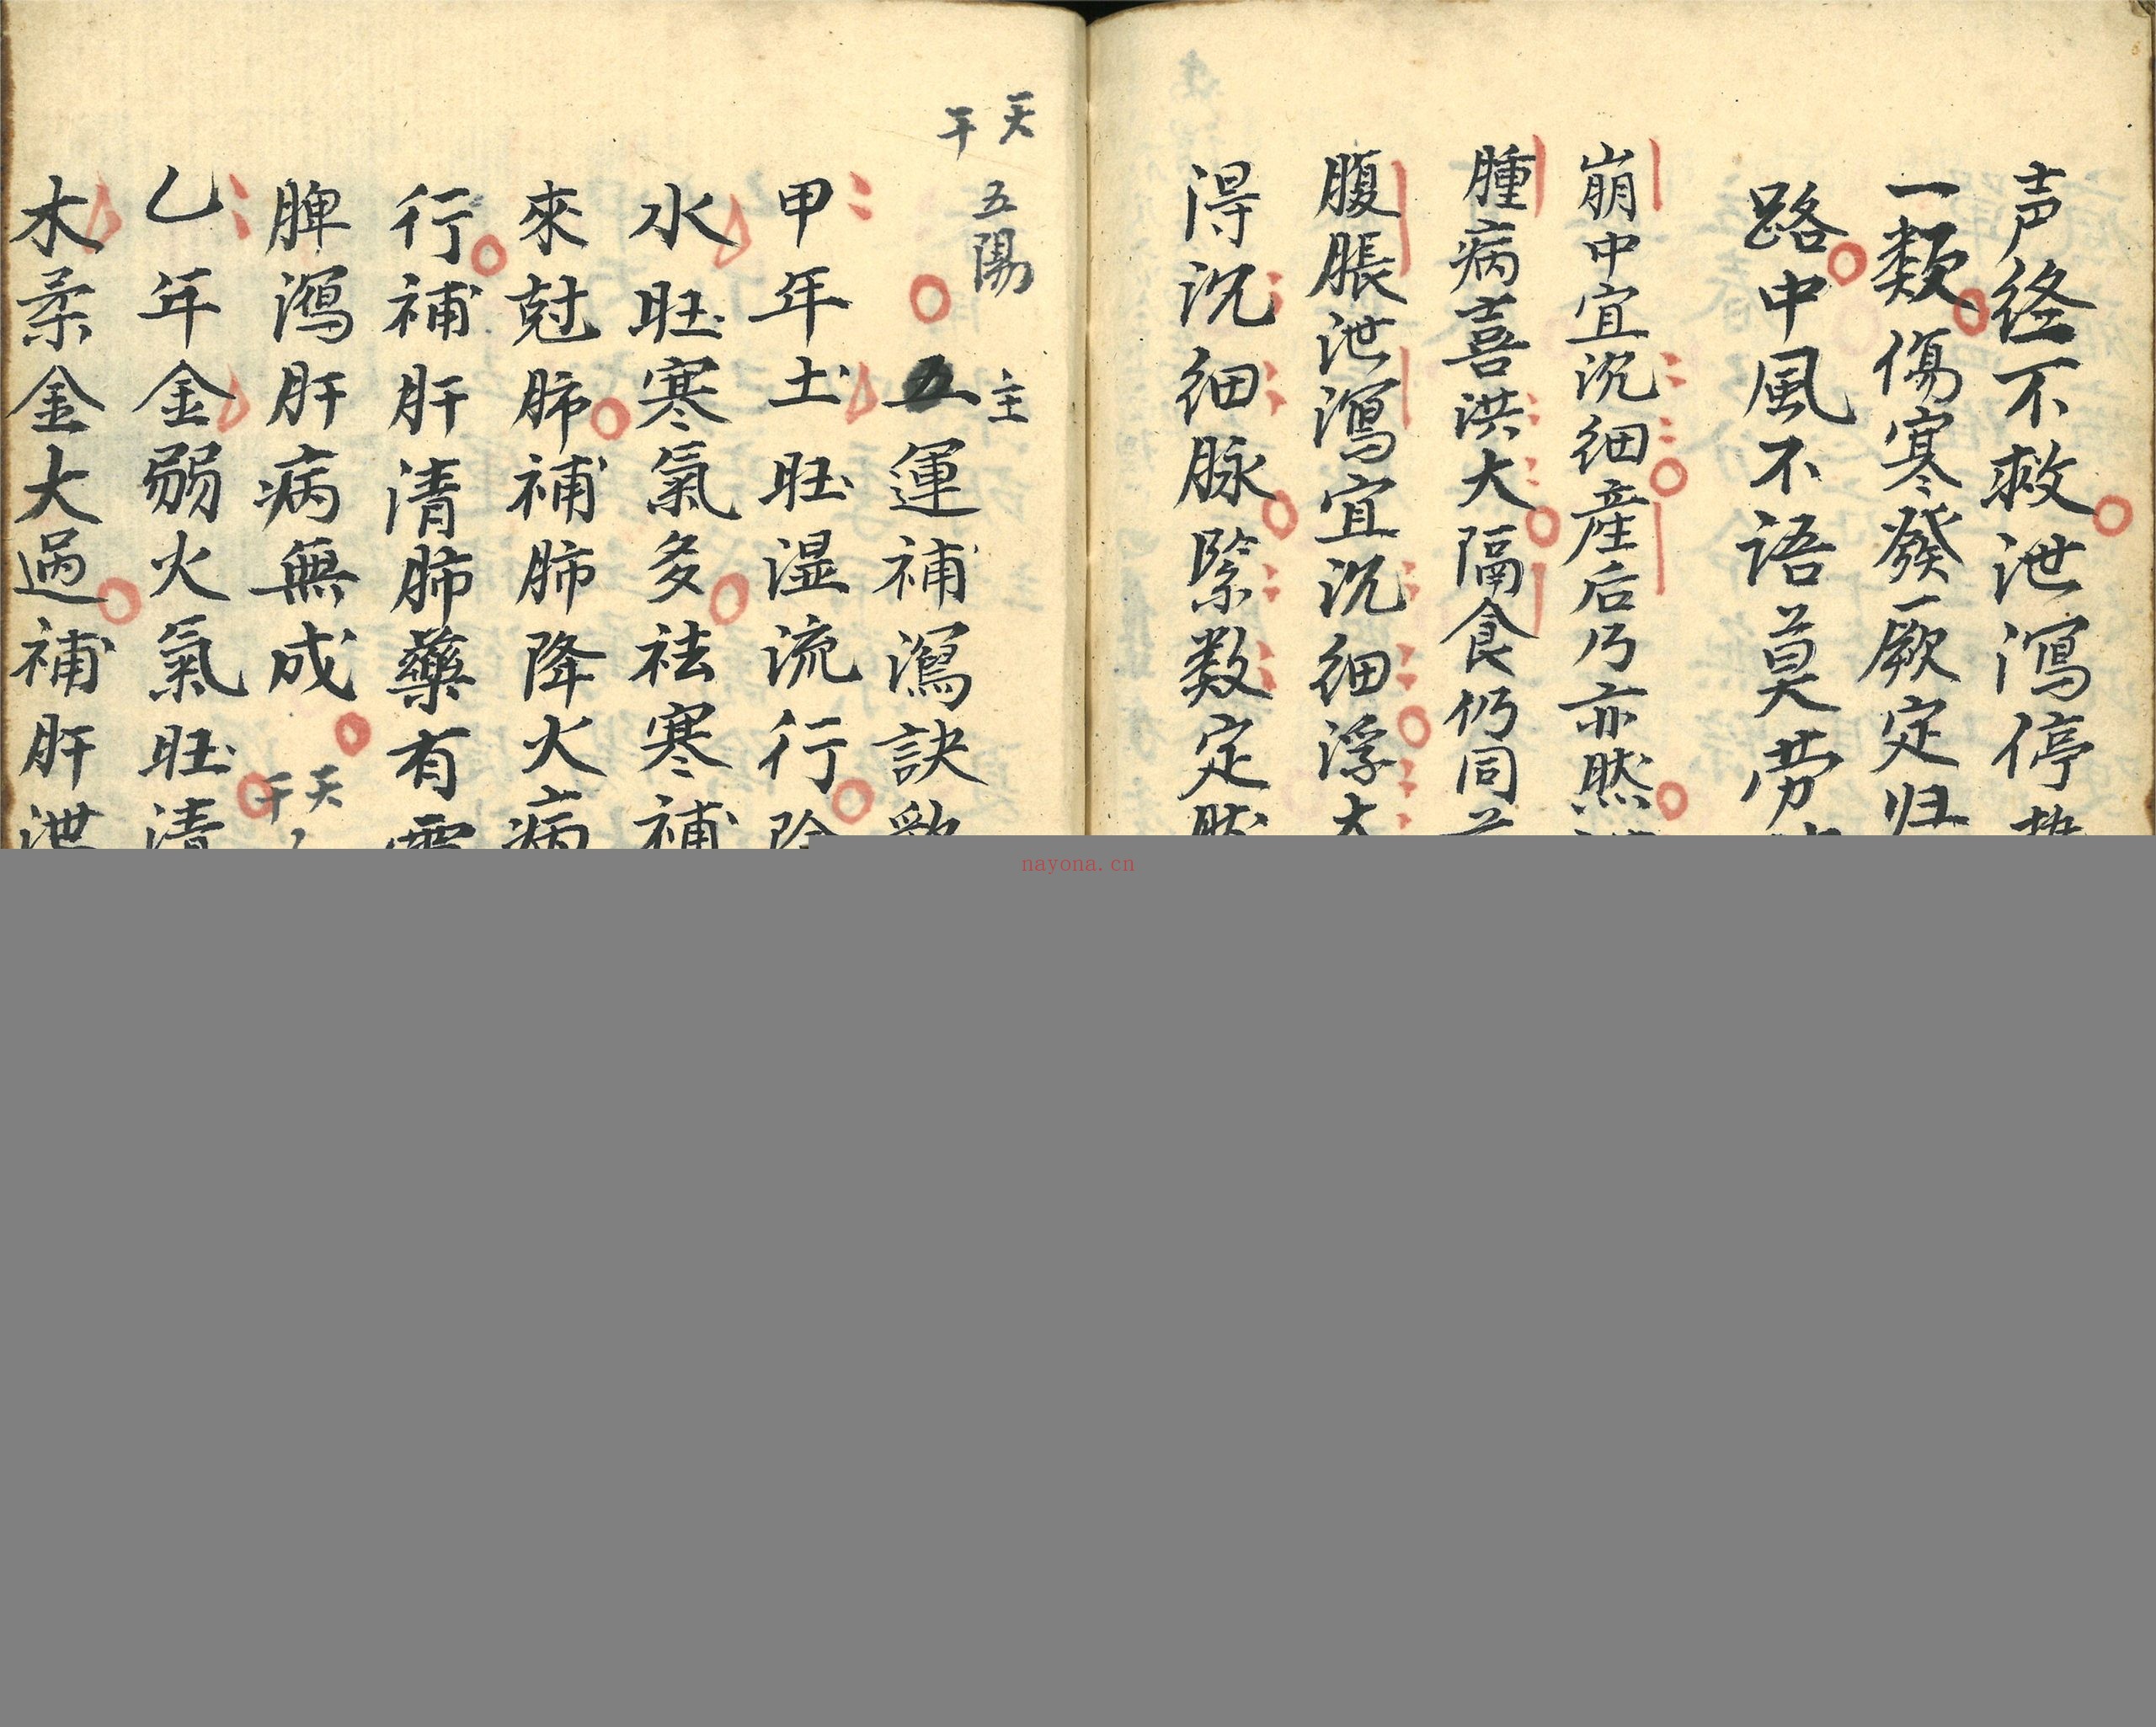 声終不救泄瀉停
一類傷寒發厥定归
路中風不语莫劳
崩中宜沉细産后乃亦然
腫病喜洪大隔食仍同
腹脹泄瀉宜沉细浮大
得沉细脉緊数定
天干
五陽
主
五運補瀉訣
甲年土旺湿流行
水旺寒氣多祛寒補
來尅肺補肺降火病
行補肝清肺藥有
脾瀉肝病無成
天干
乙年金弱火氣旺清
木柔金大過補肝泄
nayona.cn